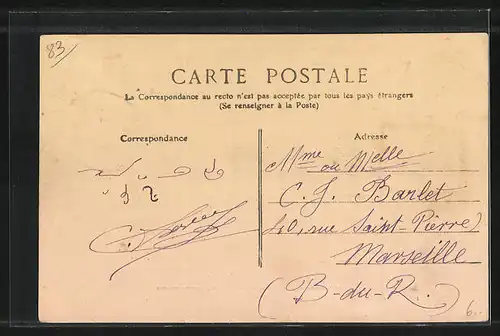 83
CARTE POSTALE
La Correspondance au recto n'est pas acceptée par tous les pays étrangers
(Se renseigner à la Poste)
Correspondance
Adresse
Mme ou Melle
C. J. Barlet
40, rue Saint-Pierre
Marseille
(B-du-R.)
6.